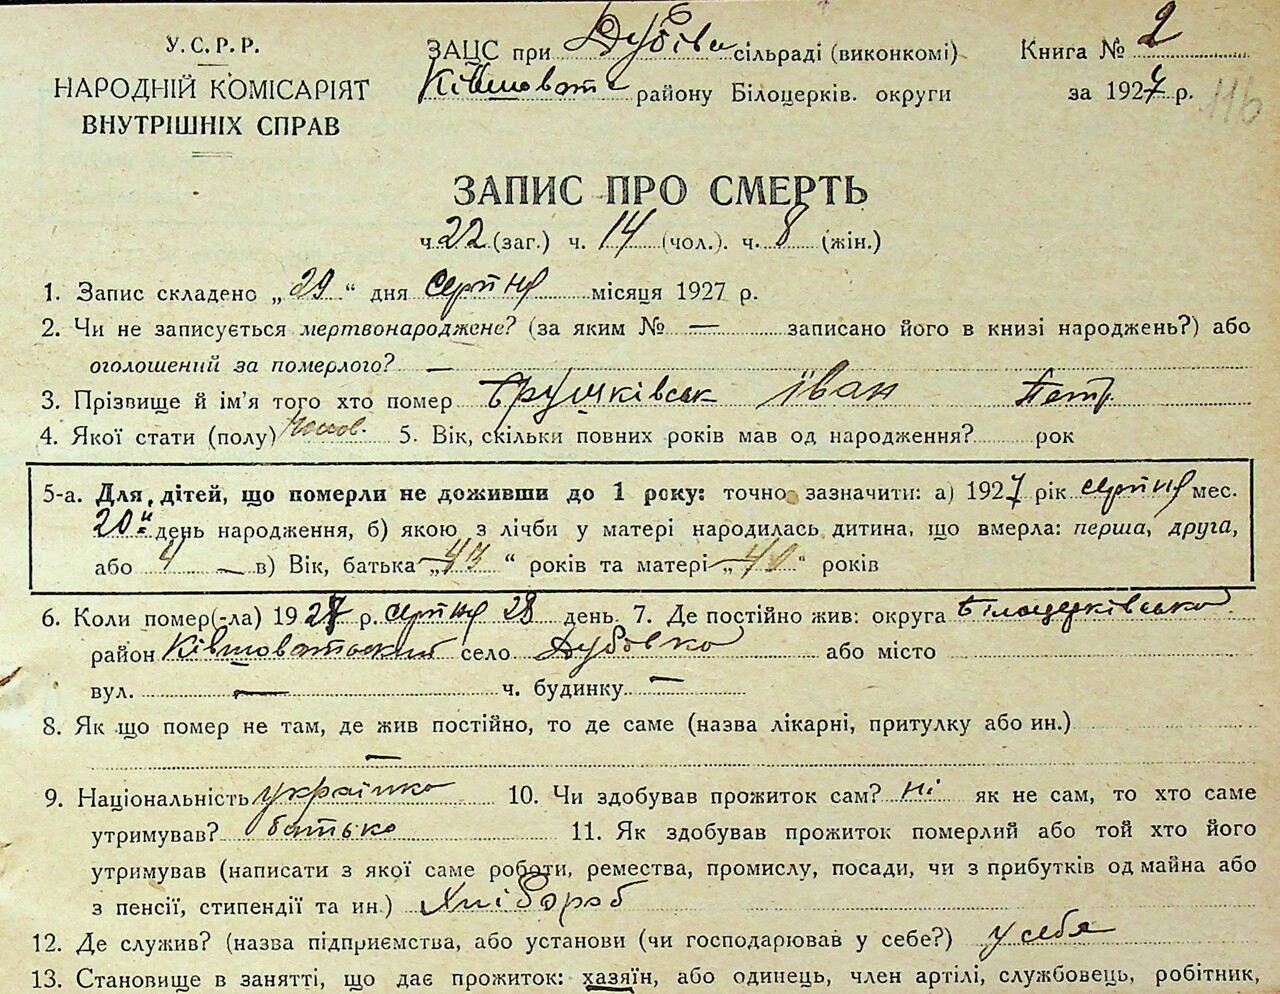 У.С.Р.Р.
НАРОДНІЙ КОМІСАРІЯТ
ВНУТРІШНІХ СПРАВ
ЗАЦС при Дубівк сільраді (виконкомі)
Ківшовате району Білоцерків. округи
Книга № 2
за 1927 р.
116
ЗАПИС ПРО СМЕРТЬ
ч. 22 (заг.) ч. 14 (чол.). ч. 8 (жін.)
1. Запис складено „29“ дня серпня місяця 1927 р.
2. Чи не записується мертвонароджене? (за яким № — записано його в книзі народжень?) або
оголошений за померлого? —
3. Прізвище й ім'я того хто помер Трушківськ Іван Петр.
4. Якої стати (полу) чолов. 5. Вік, скільки повних років мав од народження? рок
5-а. Для дітей, що померли не доживши до 1 року: точно зазначити: а) 1927 рік серпня мес.
20 день народження, б) якою з лічби у матері народилась дитина, що вмерла: перша, друга,
або 4 — в) Вік, батька „43“ років та матері „40“ років
6. Коли помер(-ла) 1927 р. серпня 28 день. 7. Де постійно жив: округа Білоцерківсько
район Ківшоватський село Дубовка або місто
вул. — ч. будинку —
8. Як що помер не там, де жив постійно, то де саме (назва лікарні, притулку або ин.)
—
9. Національність українко 10. Чи здобував прожиток сам? ні як не сам, то хто саме
утримував? батько 11. Як здобував прожиток померлий або той хто його
утримував (написати з якої саме роботи, ремества, промислу, посади, чи з прибутків од майна або
з пенсії, стипендії та ин.) Хлібороб
12. Де служив? (назва підприємства, або установи (чи господарював у себе?) у себя
13. Становище в занятті, що дає прожиток: хазяїн, або одинець, член артілі, службовець, робітник,